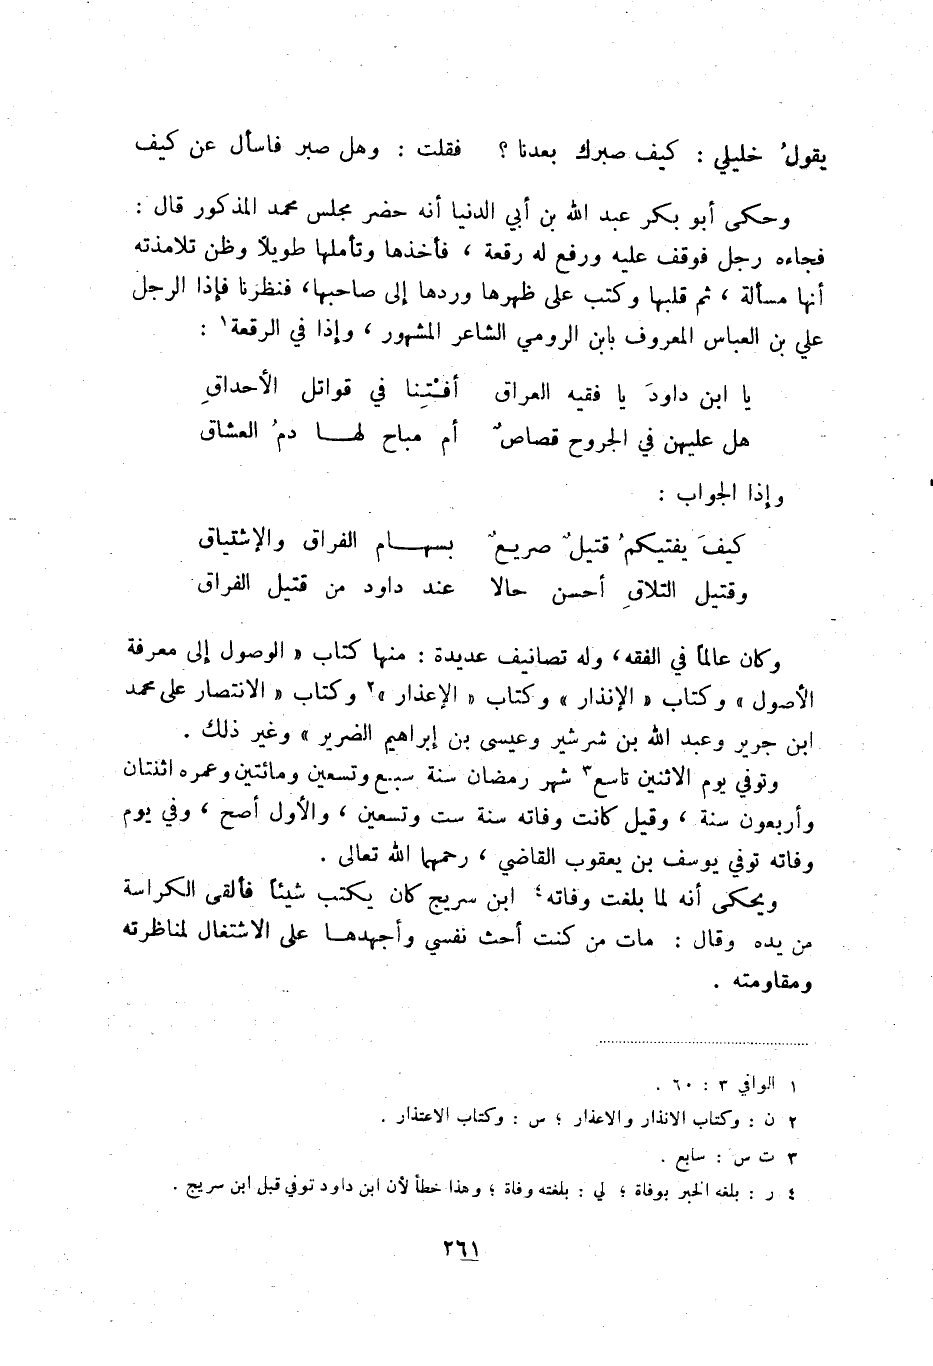 يقولُ خليلي : كيف صبرك بعدنا ؟ فقلت : وهل صبر فاسأل عن كيف
وحكى أبو بكر عبد الله بن أبي الدنيا أنه حضر مجلس محمد المذكور قال :
فجاءه رجل فوقف عليه ورفع له رقعة ، فأخذها وتأملها طويلاً وظن تلامذته
أنها مسألة ، ثم قلبها وكتب على ظهرها وردها إلى صاحبها، فنظرنا فإذا الرجل
علي بن العباس المعروف بابن الرومي الشاعر المشهور ، وإذا في الرقعة١ :
يا ابن داودَ يا فقيه العراق أفْتِنا في قواتل الأحداقِ
هل عليهن في الجروح قصاصٌ أم مباح لهـا دمُ العشاق
وإذا الجواب :
كيفَ يفتيكمُ قتيلٌ صريعٌ بسهـام الفراق والإشتياق
وقتيل التلاقِ أحسن حالا عند داود من قتيل الفراق
وكان عالماً في الفقه، وله تصانيف عديدة : منها كتاب « الوصول إلى معرفة
الأصول » وكتاب « الإنذار » وكتاب « الإعذار »٢ وكتاب « الانتصار على محمد
ابن جرير وعبد الله بن شرشير وعيسى بن إبراهيم الضرير » وغير ذلك .
وتوفي يوم الاثنين تاسع٣ شهر رمضان سنة سبع وتسعين ومائتين وعمره اثنتان
وأربعون سنة ، وقيل كانت وفاته سنة ست وتسعين ، والأول أصح ، وفي يوم
وفاته توفي يوسف بن يعقوب القاضي ، رحمهما الله تعالى .
ويحكى أنه لما بلغت وفاته٤ ابن سريج كان يكتب شيئاً فألقى الكراسة
من يده وقال : مات من كنت أحث نفسي وأجهدهـا على الاشتغال لمناظرته
ومقاومته .
١ الوافي ٣ : ٦٠ .
٢ ن : وكتاب الانذار والاعذار ؛ س : وكتاب الاعتذار .
٣ ت س : سابع .
٤ ر : بلغه الخبر بوفاة ؛ لي : بلغته وفاة ؛ وهذا خطأ لأن ابن داود توفي قبل ابن سريج .
٢٦١